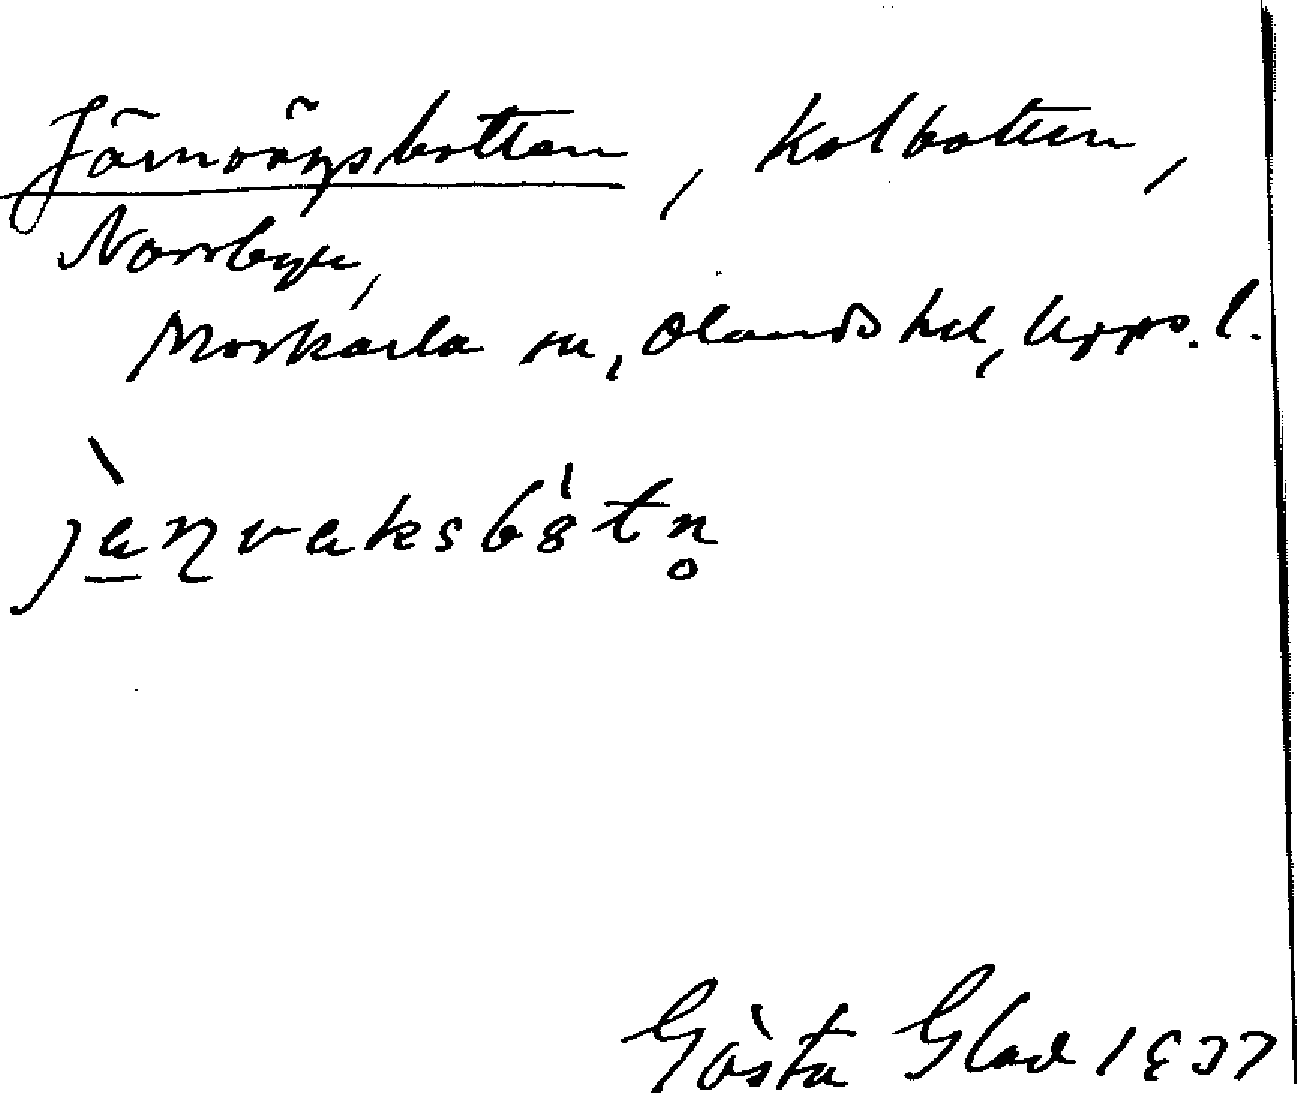 Järnvägsbotten, kolbotten,
Norrbyn,
Morkarla sn, Olands hd, Upps. l.
Gösta Glad 1937